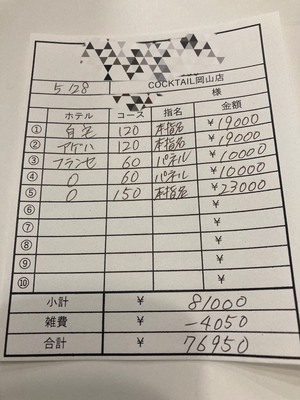 COCKTAIL岡山店
5/28 様
ホテル コース 指名 金額
① 自宅 120 本指名 ¥19000
② アゲハ 120 本指名 ¥19000
③ フランセ 60 パネル ¥10000
④ 0 60 パネル ¥10000
⑤ 0 150 本指名 ¥23000
⑥ ¥
⑦ ¥
⑧ ¥
⑨ ¥
⑩ ¥
小計 ¥ 81000
雑費 ¥ -4050
合計 ¥ 76950